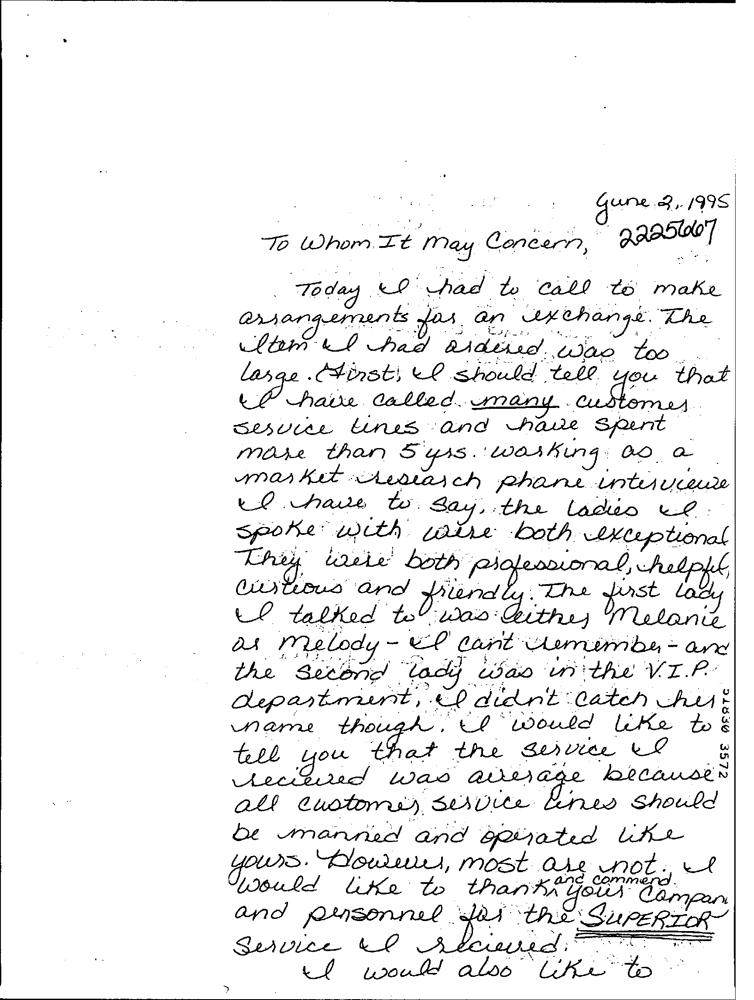 June 2, 1995
To Whom It May Concern,
2225667
Today I had to call to make
arrangements for an exchange. The
item I had ordered was too
large. First, I should tell you that
I have called many customer
service lines and have spent
more than 5 yrs. working as a
market research phone interviewe
I have to say, the ladies I
spoke with were both exceptional
They were both professional, helpful,
curteous and friendly. The first lady
I talked to was either Melanie
or Melody - I can't remember - and
the second lady was in the V.I.P.
department, I didn't catch her
name though. I would like to
tell you that the service I
recieved was average because
all customer service lines should
be manned and operated like
yours. However, most are not. I
would like to thank and commend your Compan
and personnel for the SUPERIOR
Service I recieved.
I would also like to
51830 3572